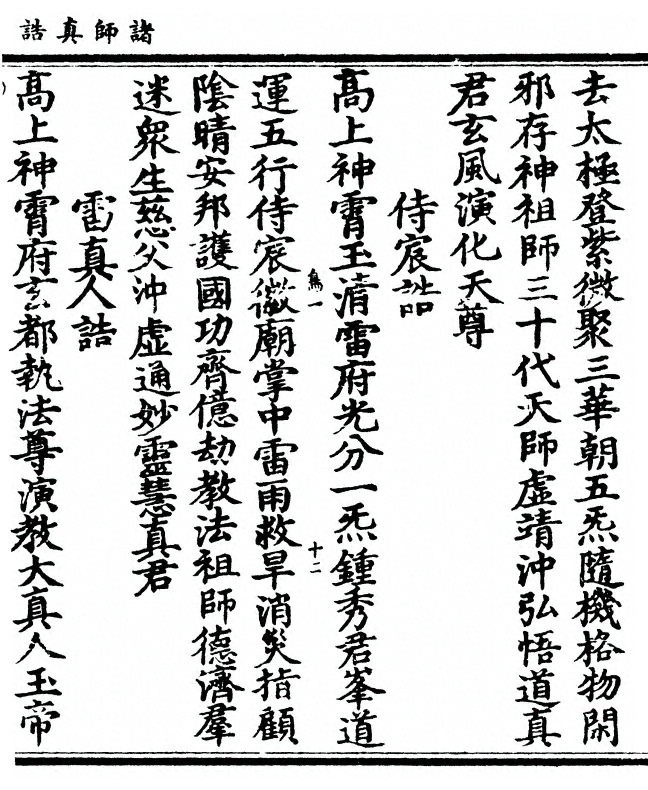 諸師真誥
去太極登紫微聚三華朝五炁隨機格物閑
邪存神祖師三十代天師虛靖沖弘悟道真
君玄風演化天尊
侍宸誥
高上神霄玉清雷府光分一炁鍾秀君峯道
鳥一
十二
運五行侍宸徽廟掌中雷雨救旱消災指顧
陰晴安邦護國功齊億劫教法祖師德濟羣
迷衆生慈父沖虛通妙靈慧真君
雷真人誥
高上神霄府玄都執法尊演教大真人玉帝